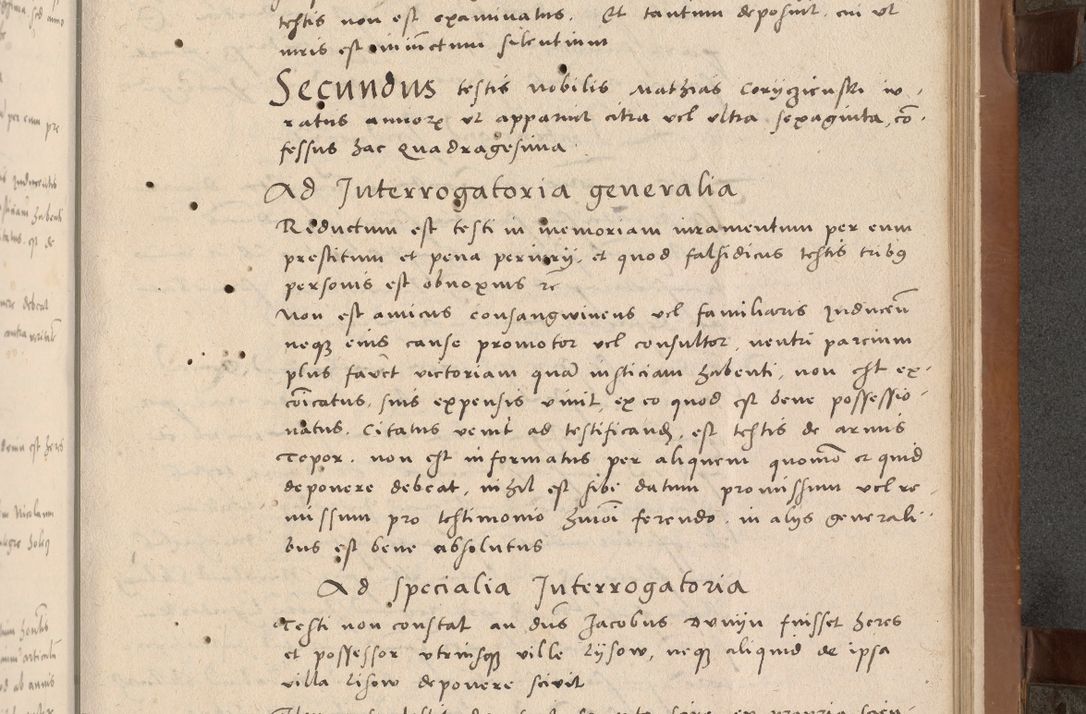 testis non est examinatus. Et tantum deposuit. cui ut
iuris est iniunctum silentium
Secundus testis nobilis Mathias Coryczienski iu-
ratus annorꝝ ut apparuit citra vel ultra sexaginta, cõ-
fessus hac Quadragesima
Ad Interrogatoria generalia
Reductum est testi in memoriam iuramentum per eum
prestitum et pena periurij, et quod falsidicus testis tribꝰ
personis est obnoxius
Non est amicus consangwineus vel familiaris Inducen̄
neqꝫ eius cause promotor vel consultor, neutri parcium
plus favet victoriam quã iusticiam habenti, non est ex-
cõicatus, suis expensis vivit, ex eo quod est bene possessio-
natus. Citatus venit ad testificand̄, est testis de armis
Topor. non est informatus per aliquem quomõ et quid
deponere debeat, nihil est sibi datum promissum vel re-
missum pro testimonio hmõi ferendo, in alijs generali-
bus est bene absolutus
Ad specialia Interrogatoria
Testi non constat an dns̄ Jacobus Dunijn fuisset heres
et possessor utriusqꝫ ville Rysow, neqꝫ aliquid de ipsa
villa Risow deponere scivit